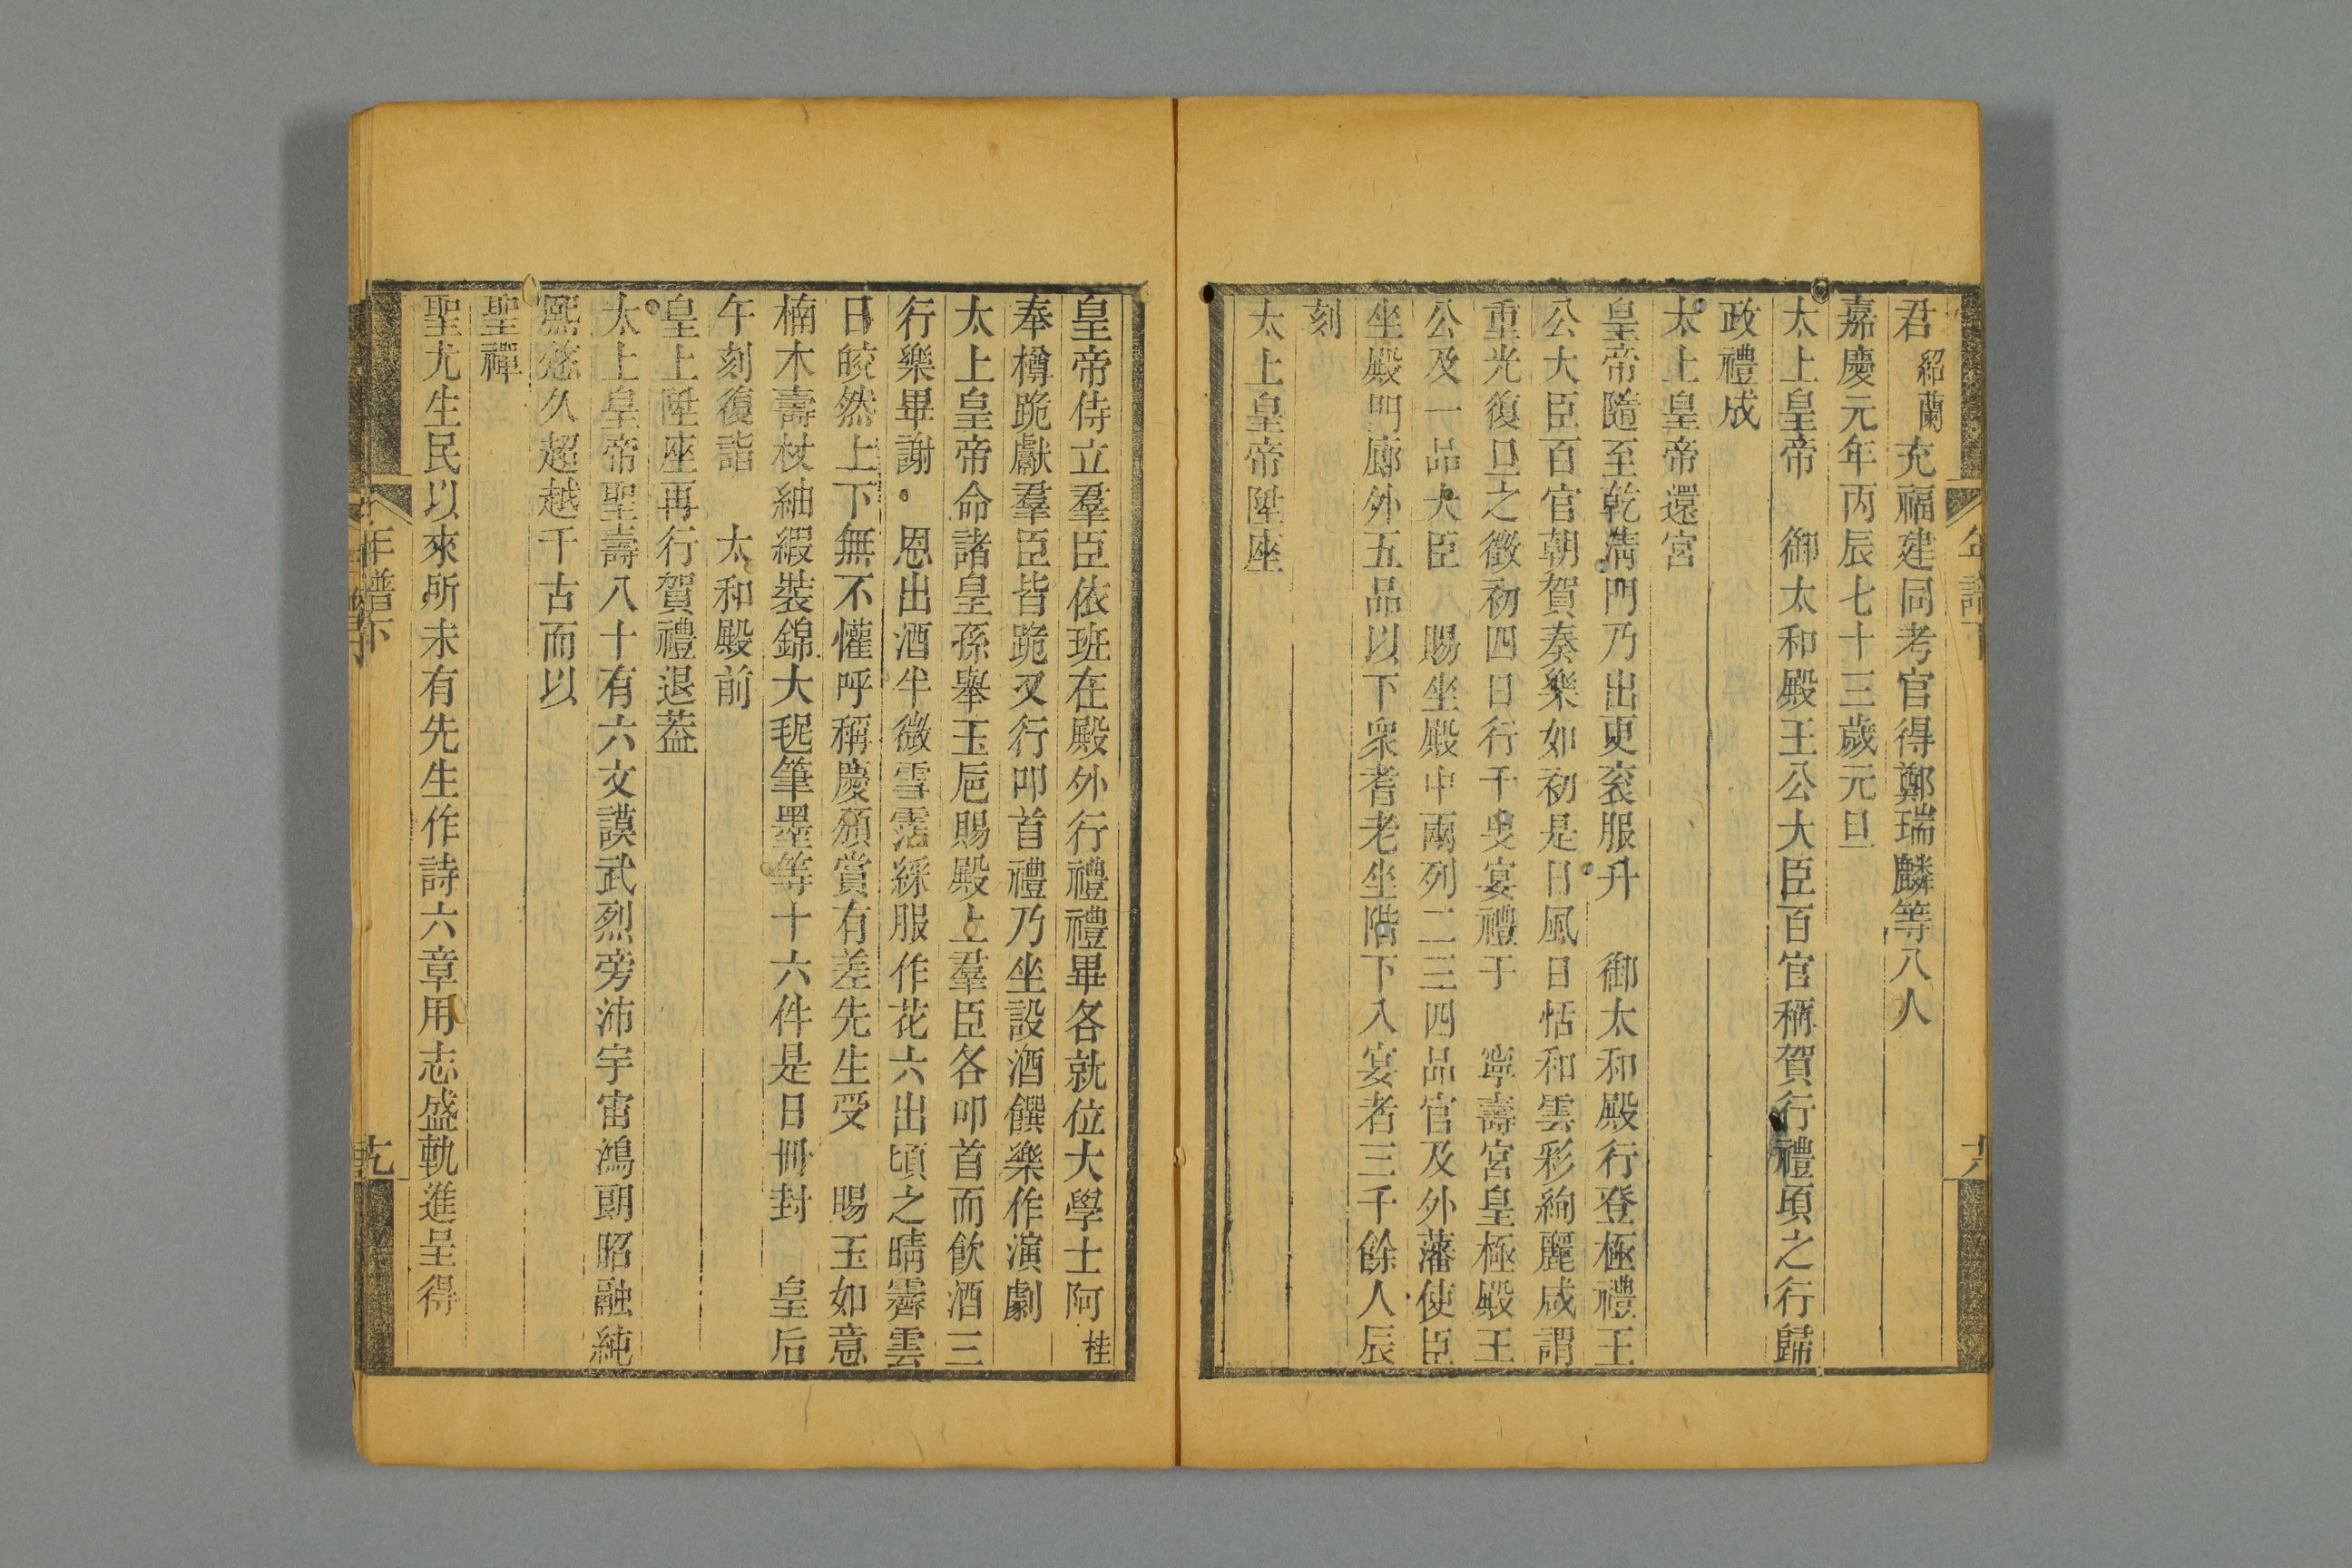 君紹蘭充福建同考官得鄭瑞麟等八人
嘉慶元年丙辰七十三歲元旦
太上皇帝　御太和殿王公大臣百官稱賀行禮頃之行歸
政禮成
太上皇帝還宮
皇帝隨至乾清門乃出更衮服升　御太和殿行登極禮王
公大臣百官朝賀奏樂如初是日風日恬和雲彩絢麗咸謂
重光復旦之徵初四日行千叟宴禮于　寧壽宮皇極殿王
公及一品大臣　賜坐殿中兩列二三四品官及外藩使臣
坐殿門廊外五品以下衆耆老坐階下入宴者三千餘人辰
刻
太上皇帝陞座
皇帝侍立羣臣依班在殿外行禮禮畢各就位大學士阿桂
奉樽跪獻羣臣皆跪又行叩首禮乃坐設酒饌樂作演劇
太上皇帝命諸皇孫舉玉巵賜殿上羣臣各叩首而飲酒三
行樂畢謝　恩出酒半微雪霑綵服作花六出頃之晴霽雲
日皎然上下無不懽呼稱慶頒賞有差先生受　賜玉如意
楠木壽杖紬緞裝錦大毯筆墨等十六件是日冊封　皇后
午刻復詣　太和殿前
皇上陞座再行賀禮退葢
太上皇帝聖壽八十有六文謨武烈旁沛宇宙鴻朗昭融純
熙悠久超越千古而以
聖禪
聖尤生民以來所未有先生作詩六章用志盛軌進呈得
年譜下